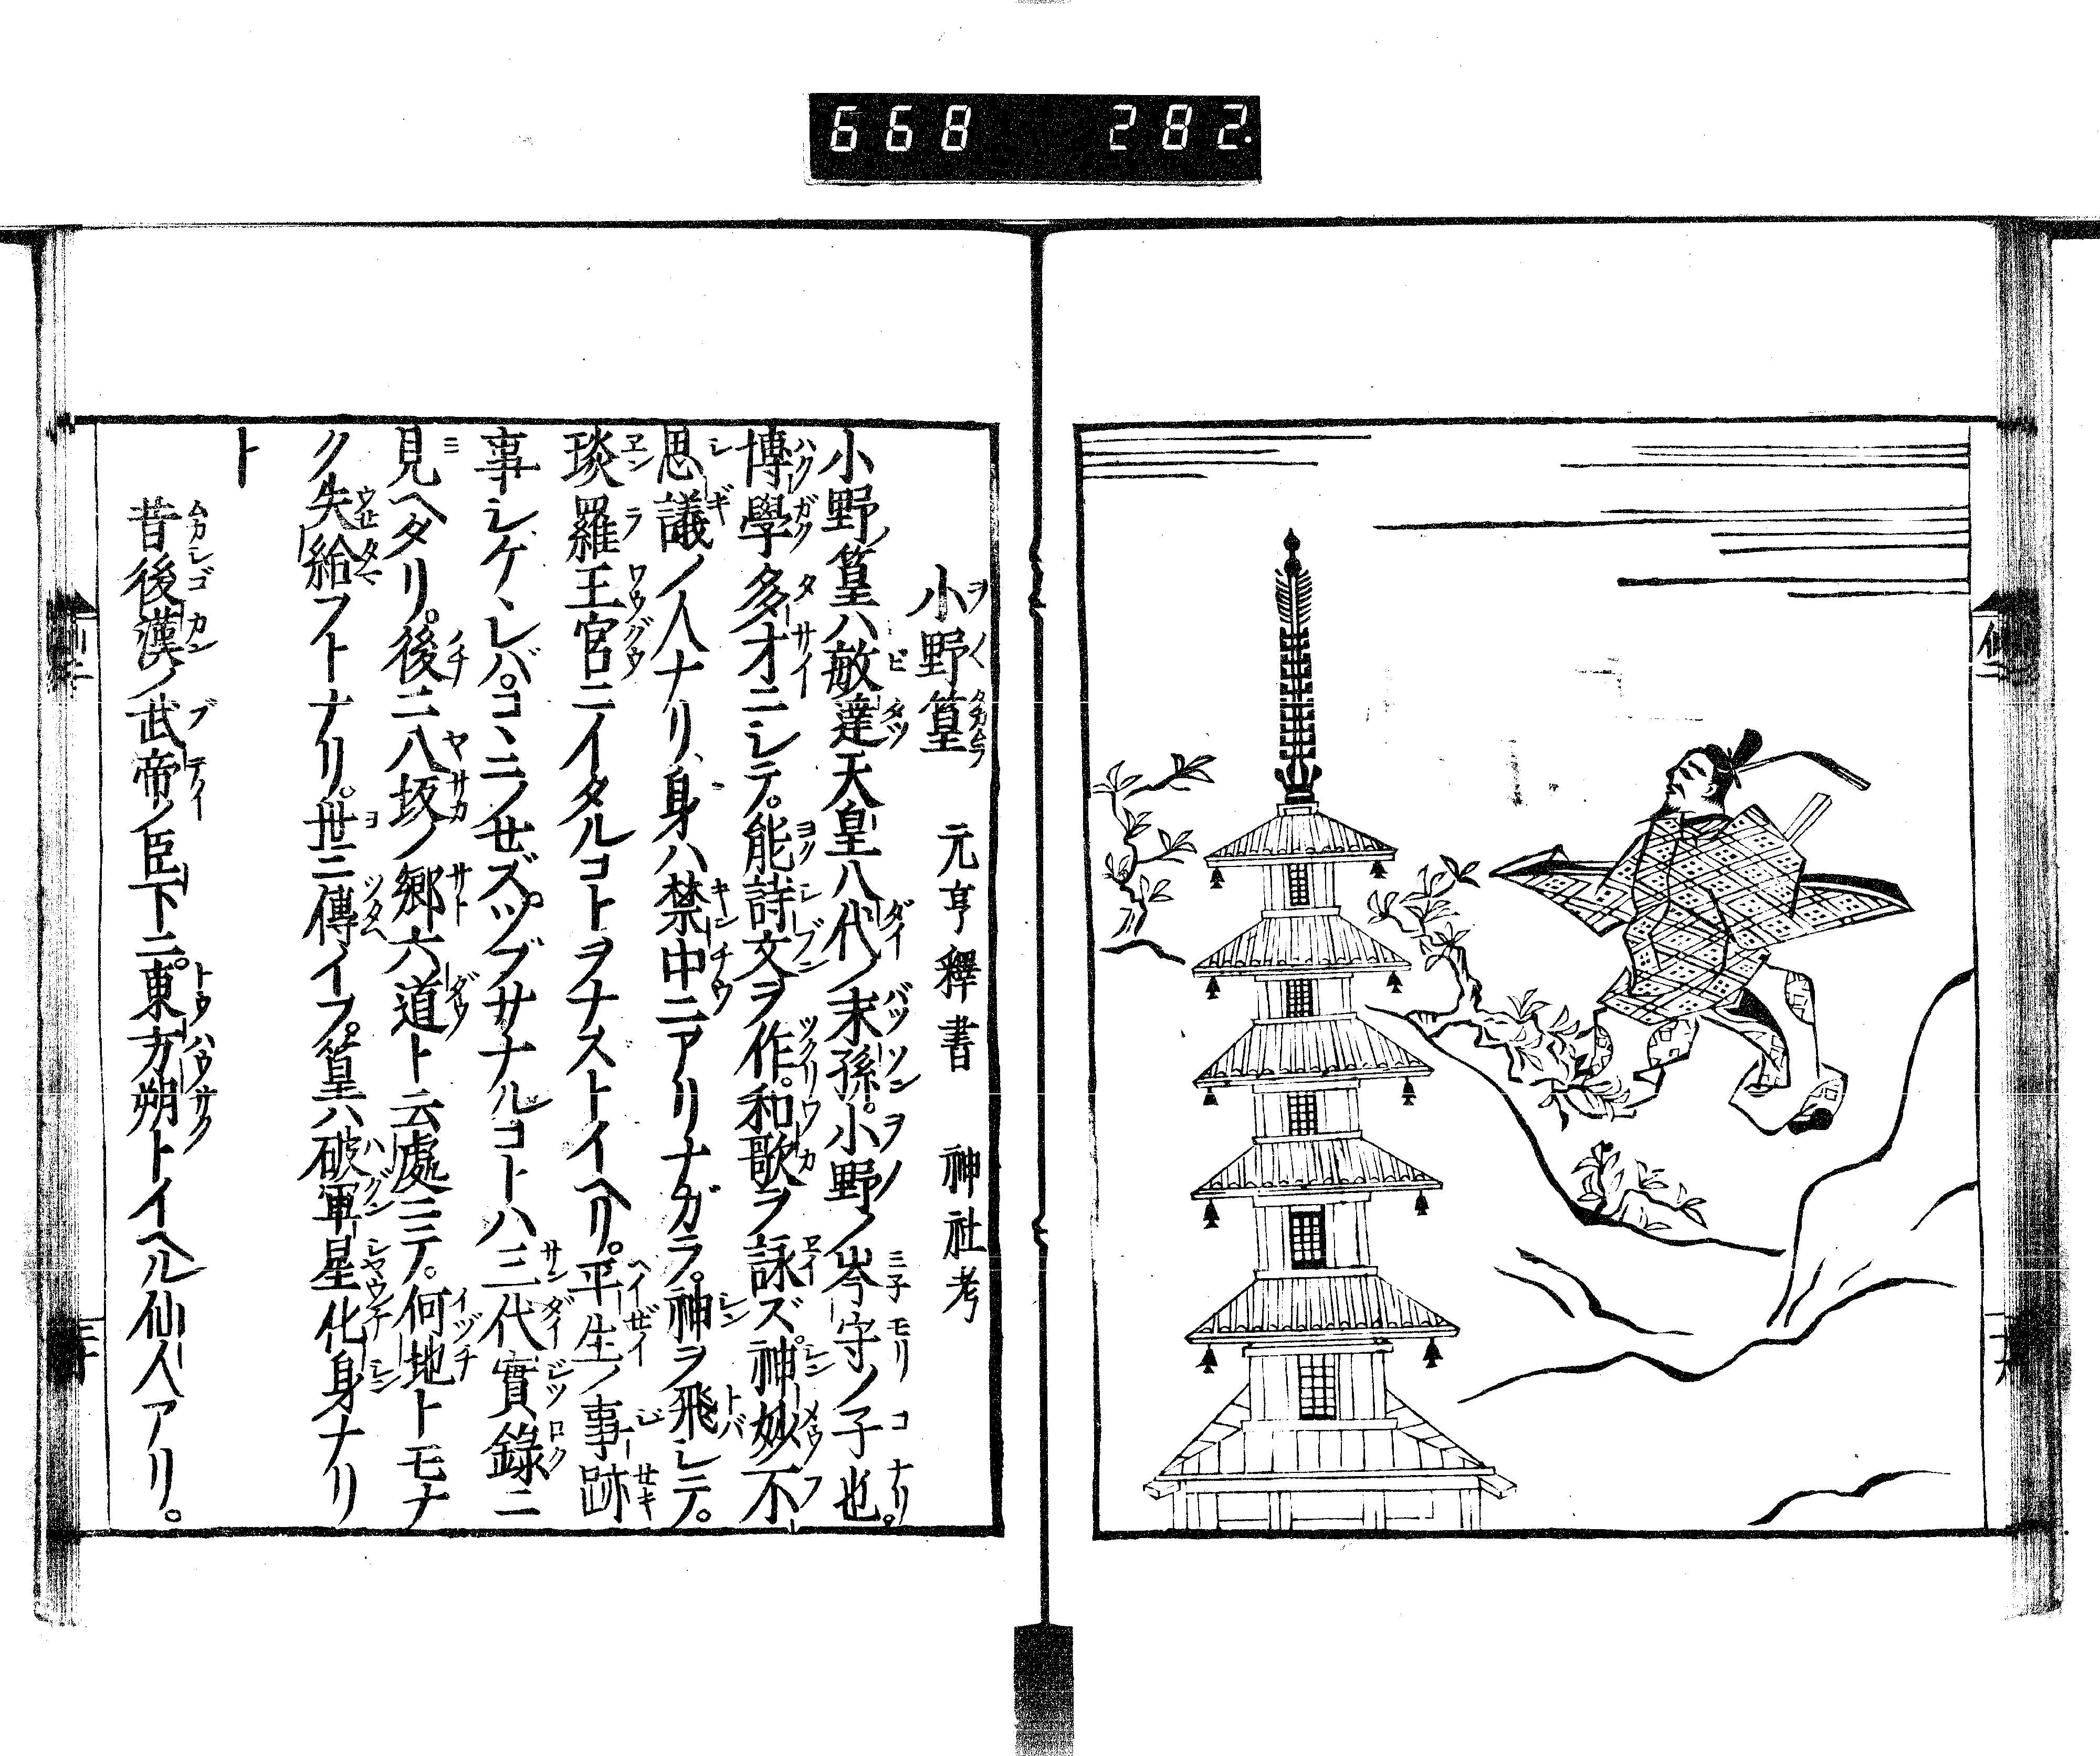 668 282.
小野篁 元亨釋書 神社考
小野ノ篁ハ敏達天皇八代ノ末孫。小野ノ岑守ノ子也。
博學多才ニシテ。能詩文ヲ作。和歌ヲ詠ズ。神妙不
思議ノ人ナリ、身ハ禁中ニアリナガラ。神ヲ飛シテ。
琰羅王宮ニイタルコトヲナストイヘリ。平生ノ事跡
事シゲヽレバ。コヽニノセズ。ツブサナルコトハ三代實錄ニ
見ヘタリ。後ニ八坂ノ郷六道ト云處ニテ。何地トモナ
ク失給フトナリ。世ニ傳イフ。篁ハ破軍星化身ナリ
ト
昔後漢ノ武帝ノ臣下ニ。東方朔トイヘル仙人アリ。